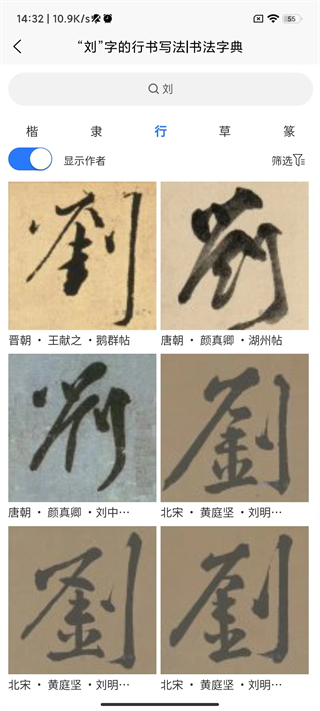 14:32 | 10.9K/s
55
“刘”字的行书写法|书法字典
刘
楷 隶 行 草 篆
显示作者 筛选
劉 劉
晋朝 · 王献之 · 鹅群帖 唐朝 · 颜真卿 · 湖州帖
劉 劉
唐朝 · 颜真卿 · 刘中… 北宋 · 黄庭坚 · 刘明…
劉 劉
北宋 · 黄庭坚 · 刘明… 北宋 · 黄庭坚 · 刘明…